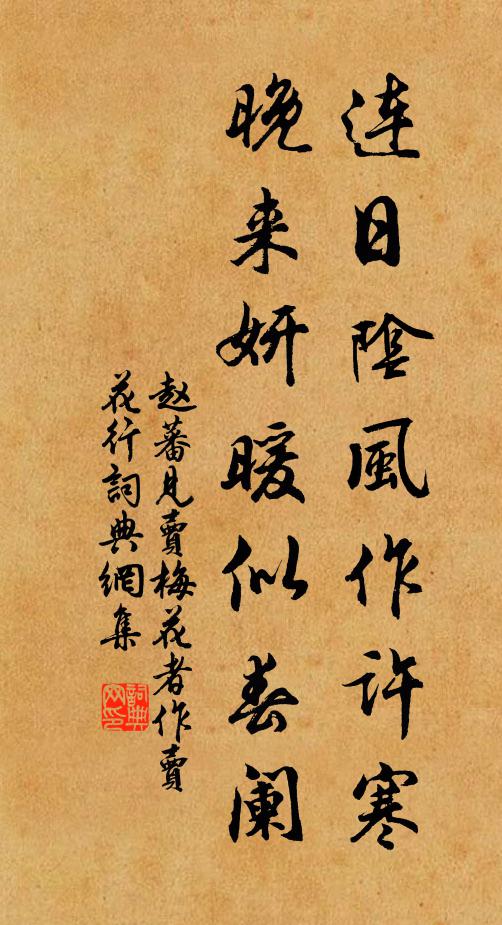 連日陰風作許寒
晚来妍暖似春阑
赵蕃见賣梅花者作賣
花行詞典網集
詞典网印